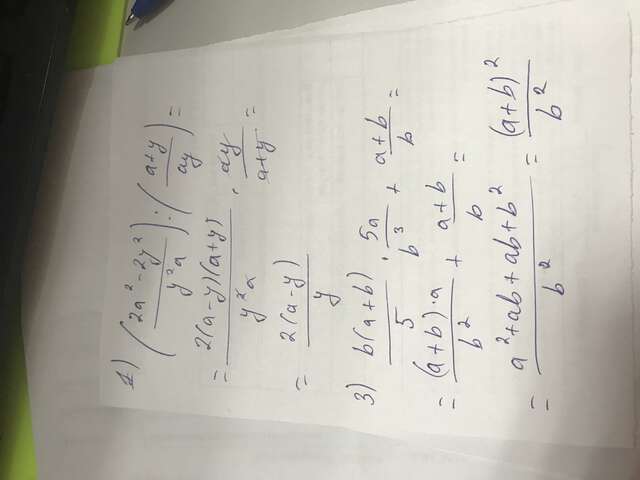 1) (2a²-2y²/y²a):(a+y/ay)=
=2(a-y)(a+y)/y²a·ay/a+y=
=2(a-y)/y
3) b(a+b)/5·5a/b³+a+b/b=
=(a+b)·a/b²+a+b/b=
=a²+ab+ab+b²/b²=(a+b)²/b²